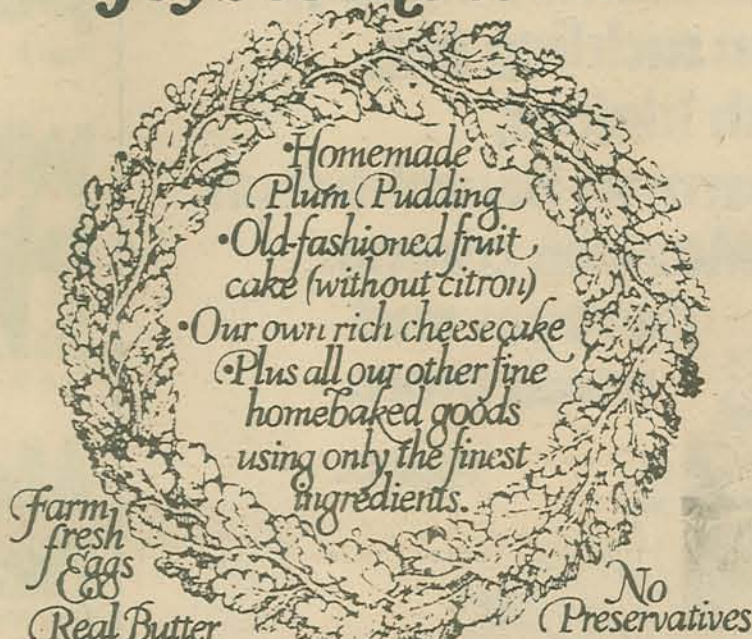 •Homemade
Plum Pudding
•Old-fashioned fruit
cake (without citron)
•Our own rich cheesecake
•Plus all our other fine
homebaked goods
using only the finest
ingredients.
Farm
fresh
Eggs
Real Butter
No
Preservatives